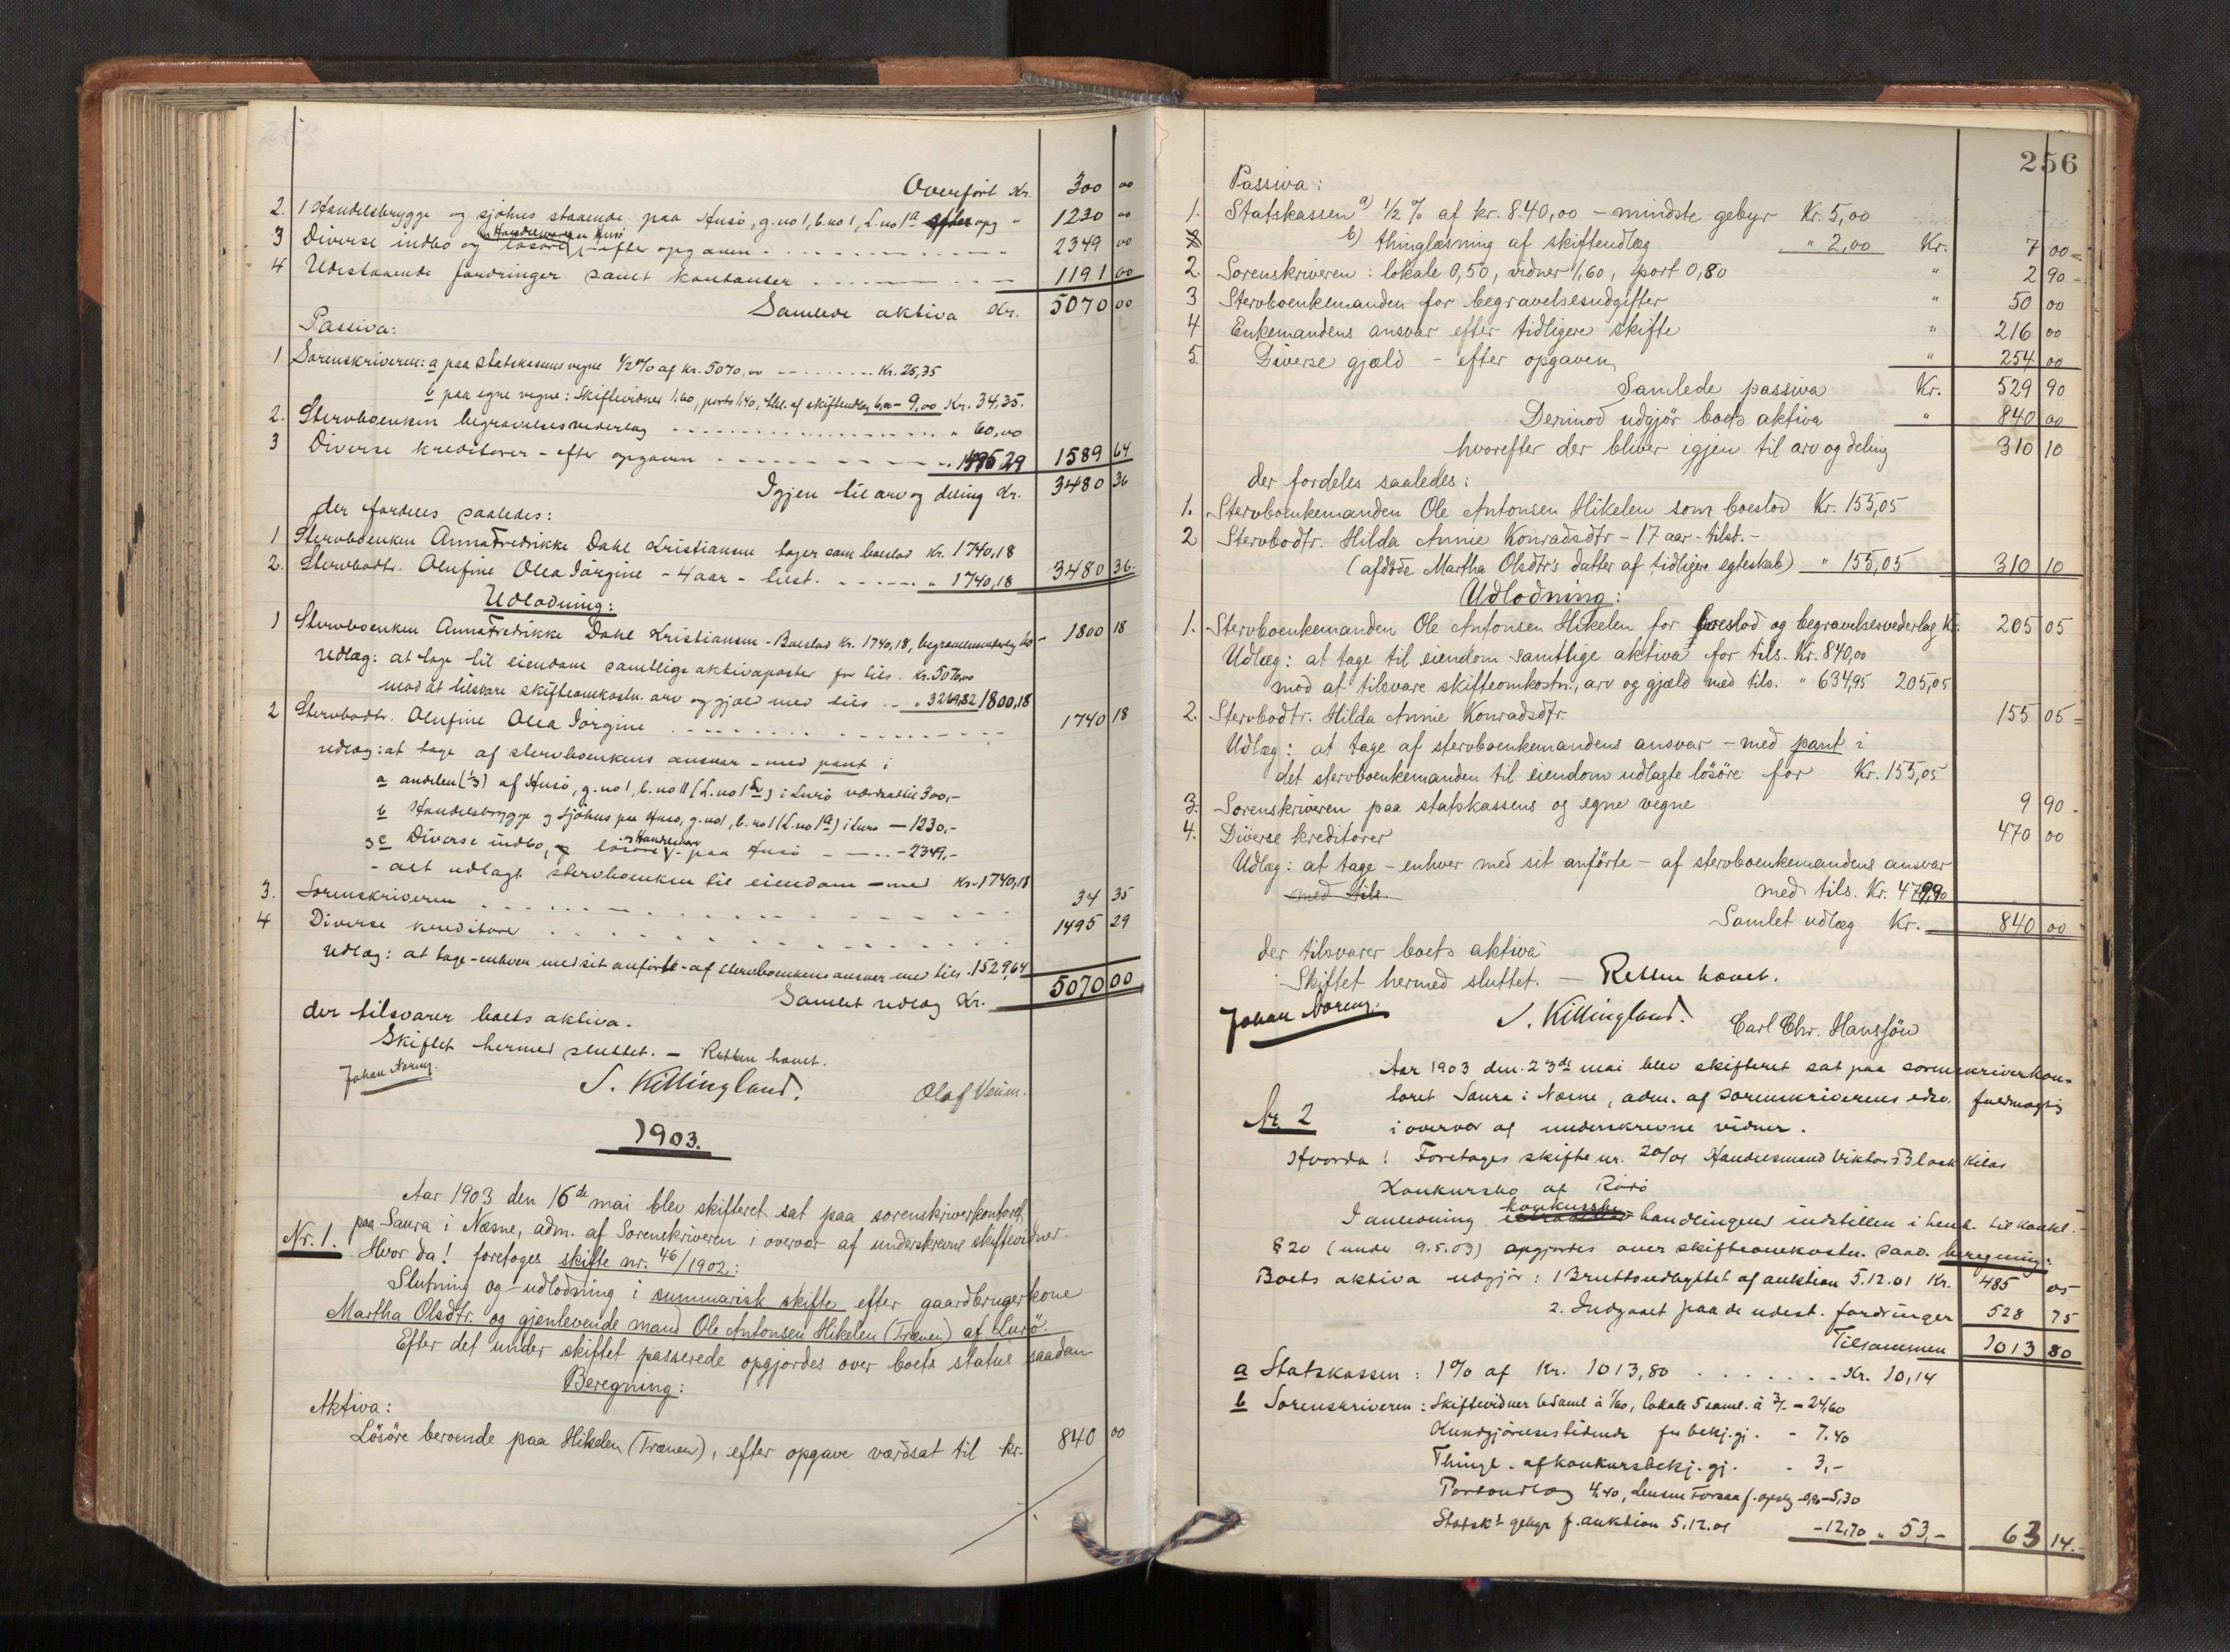 Overført Kr. 300 00
2. 1 Handelsbrygge og sjøhus staaende paa Husø, g.no 1, b.no 1, L.no 1a efter opg " 1230 00
3 Diverse indbo og løsøre, Handelsvarer Husø - efter opgaven 2349 00
4 Udestaaende fordringer samt kontanter 1191 00
Samlede aktiva Kr. 5070 00
Passiva:
1 Sorenskriveren: a paa statskassens vegne 1/2 % af kr. 5070,00 Kr. 25,35
b paa egne vegne: Skiftevidner 1,60, porto 1,40, thl. af skifteudlæg 6,00 - 9,00 Kr. 34,35.
2. Stervboenken begravelsesvederlag " 60,00
3 Diverse kreditorer - efter opgaven " 1495 29 1589 64
Igjen til arv og deling Kr. 3480 36
der fordeles saaledes:
1 Stervboenken Anna Fredrikke Dahl Kristiansen tager som boeslod Kr. 1740,18
2. Stervbodtr. Olufine Olea Jørgine - 4 aar - tilst. " 1740,18 3480 36.
Udlodning:
1 Stervboenken Anna Fredrikke Dahl Kristiansen - Boeslod Kr. 1740,18, begravelsesvederlag 60 - 1800 18
Udlæg: at tage til eiendom samtlige aktivaposter for tils. Kr. 5070,00
mod at tilsvare skifteomkostn. arv og gjæld med tils " 3269,82 1800,18
2 Stervbodtr. Olufine Olea Jørgine 1740 18
udlæg: at tage af stervboenkens ansvar - med pant i
a andelen (1/3) af Husø, g.no 1, b.no 11 (L.no 1 ) i Lurø værdsat til 300,-
b Handelsbrygge og sjøhus paa Husø, g.no 1, b.no 1 (L.no 1a) i Lurø - 1230,-
c Diverse indbo, løsøre og Handelsvarer - paa Husø - 2349,-
- alt udlagt stervboenken til eiendom - med Kr. 1740,18
3. Sorenskriveren 34 35
4 Diverse kreditorer 1495 29
Udlæg: at tage - enhver med sit anførte - af stervboenkens ansvar med tils. 1529,64
Samlet udlæg Kr. 5070 00
der tilsvarer boets aktiva.
Skiftet hermed sluttet. - Retten hævet.
Johan Noreng. S. Killingland. Olaf Veum.
1903.
Aar 1903 den 16de mai blev skifteret sat paa sorenskriverkontoret
paa Saura i Næsne, adm. af Sorenskriveren i overvær af underskrevne skiftevidner.
Nr. 1. Hvor da! foretoges skifte nr. 46/1902:
Slutning og udlodning i summarisk skifte efter gaardbrugerkone
Martha Olsdtr. og gjenlevende mand Ole Antonsen Hikelen (Trænen) af Lurø.
Efter det under skiftet passerede opgjordes over boets status saadan
Beregning:
Aktiva:
Løsøre beroende paa Hikelen (Trænen), efter opgave værdsat til kr. 840 00
256
Passiva:
1. Statskassen a) 1/2 % af kr. 840,00 - mindste gebyr Kr. 5,00
b) thinglæsning af skifteudlæg " 2,00 Kr. 7 00
2. Sorenskriveren: lokale 0,50, vidner 1,60, port 0,80 " 2 90
3 Stervboenkemanden for begravelsesudgifter " 50 00
4 Enkemandens ansvar efter tidligere skifte " 216 00
5. Diverse gjæld - efter opgaven " 254 00
Samlede passiva Kr. 529 90
Derimod udgjør boets aktiva " 840 00
hvorefter der bliver igjen til arv og deling 310 10
der fordeles saaledes:
1. Stervboenkemanden Ole Antonsen Hikelen som boeslod Kr. 155,05
2 Stervbodtr. Hilda Annie Konradsdtr - 17 aar - tilst. -
(afdøde Martha Olsdtr's datter af tidligere egteskab) " 155,05 310 10
Udlodning:
1. Stervboenkemanden Ole Antonsen Hikelen for boeslod og begravelsesvederlag Kr. 205 05
Udlæg: at tage til eiendom samtlige aktiva for tils. Kr. 840,00
mod at tilsvare skifteomkostn., arv og gjæld med tils. " 634,95 205,05
2. Stervbodtr. Hilda Annie Konradsdtr. 155 05
Udlæg: at tage af stervboenkemandens ansvar - med pant i
det stervboenkemanden til eiendom udlagte løsøre for Kr. 155,05
3. Sorenskriveren paa statskassens og egne vegne 9 90
4. Diverse kreditorer 470 00
Udlæg: at tage - enhver med sit anførte - af stervboenkemandens ansvar
med tils. med tils. Kr. 479,90
Samlet udlæg Kr. 840 00
der tilsvarer boets aktiva
Skiftet hermed sluttet. - Retten hævet.
Johan Noreng. S. Killingland. Carl Chr. Hansjön
Aar 1903 den 23de mai blev skifteret sat paa sorenskriverkon-
toret Saura i Næsne, adm. af sorenskriverens edsv. fuldmægtig
Nr. 2 i overvær af underskrevne vidner.
Hvorda! Foretoges skifte nr. 20/01 Handelsmand Viktor Black Kilds
Konkursbo af Rødø
I anledning konkursbehandlingens indstillen i henh. til konkl.
§ 20 (under 9.5.03) opgjordes over skifteomkostn. saad. beregning:
Boets aktiva udgjør: 1 Bruttoudbyttet af auktion 5.12.01 Kr. 485 05
2. Indgaaet paa de udest. fordringer 528 75
Tilsammen 1013 80
a Statskassen: 1% af Kr. 1013,80 Kr. 10,14
b Sorenskriveren: Skiftevidner 6 saml. à 1/60, lokale 5 saml. à 3/- - 24,60
Kundgjørelsestidende for bekj.gj. - 7.40
Thingl. af konkursbekj.gj. - 3,-
Portoudlæg 4,40, f. opslg 0,90 - 5,30
Statsk's gebyr f. auktion 5.12.01 - 12,70 " 53,- 63 14.